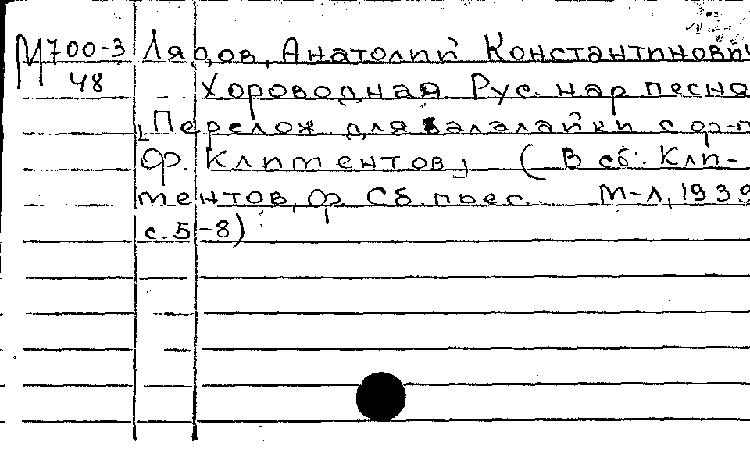 М700-3 Лядов, Анатолий Константинови
48 Хороводная. Рус. нар песня
[Перелож для балалайки с ф-п
Ф. Климентов] (В сб: Кли-
ментов, Ф Сб. пьес. М-Л, 1939
с. 5-8)